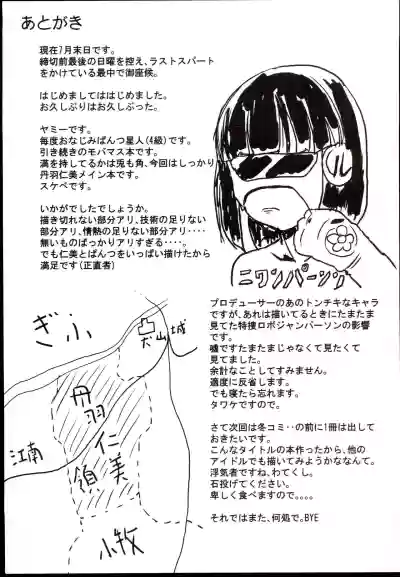 あとがき
現在7月末日です。
締切前最後の日曜を控え、ラストスパート
をかけている最中で御座候。
はじめましてははじめました。
お久しぶりはお久しぶった。
ヤミーです。
毎度おなじみぱんつ星人(4級)です。
引き続きのモバマス本です。
満を持してるかは兎も角、今回はしっかり
丹羽仁美メイン本です。
スケベです。
いかがでしたでしょうか。
描き切れない部分アリ、技術の足りない
部分アリ、情熱の足りない部分アリ・・・
無いものばっかりアリすぎる・・・・。
でも仁美とぱんつをいっぱい描けたから
満足です(正直者)
ル
ニワンパーソン
プロデューサーのあのトンチキなキャラ
ですが、あれは描いてるときにたまたま
見てた特捜ロボジャンパーソンの影響
です。
嘘ですたまたまじゃなくて見たくて見
てました。
余計なことしてすみません。
適度に反省します。
でも寝たら忘れます。
タワケですので。
さて次回は冬コミ・・の前に1冊は出して
おきたいです。
こんなタイトルの本作ったから、他の
アイドルでも描いてみようかななんて。
浮気者ですね、わてくし。
石投げてください。
卑しく食べますので。。。。
それではまた、何処で。BYE
ぎふ
凸
犬山城
丹羽仁美領
江南
小牧